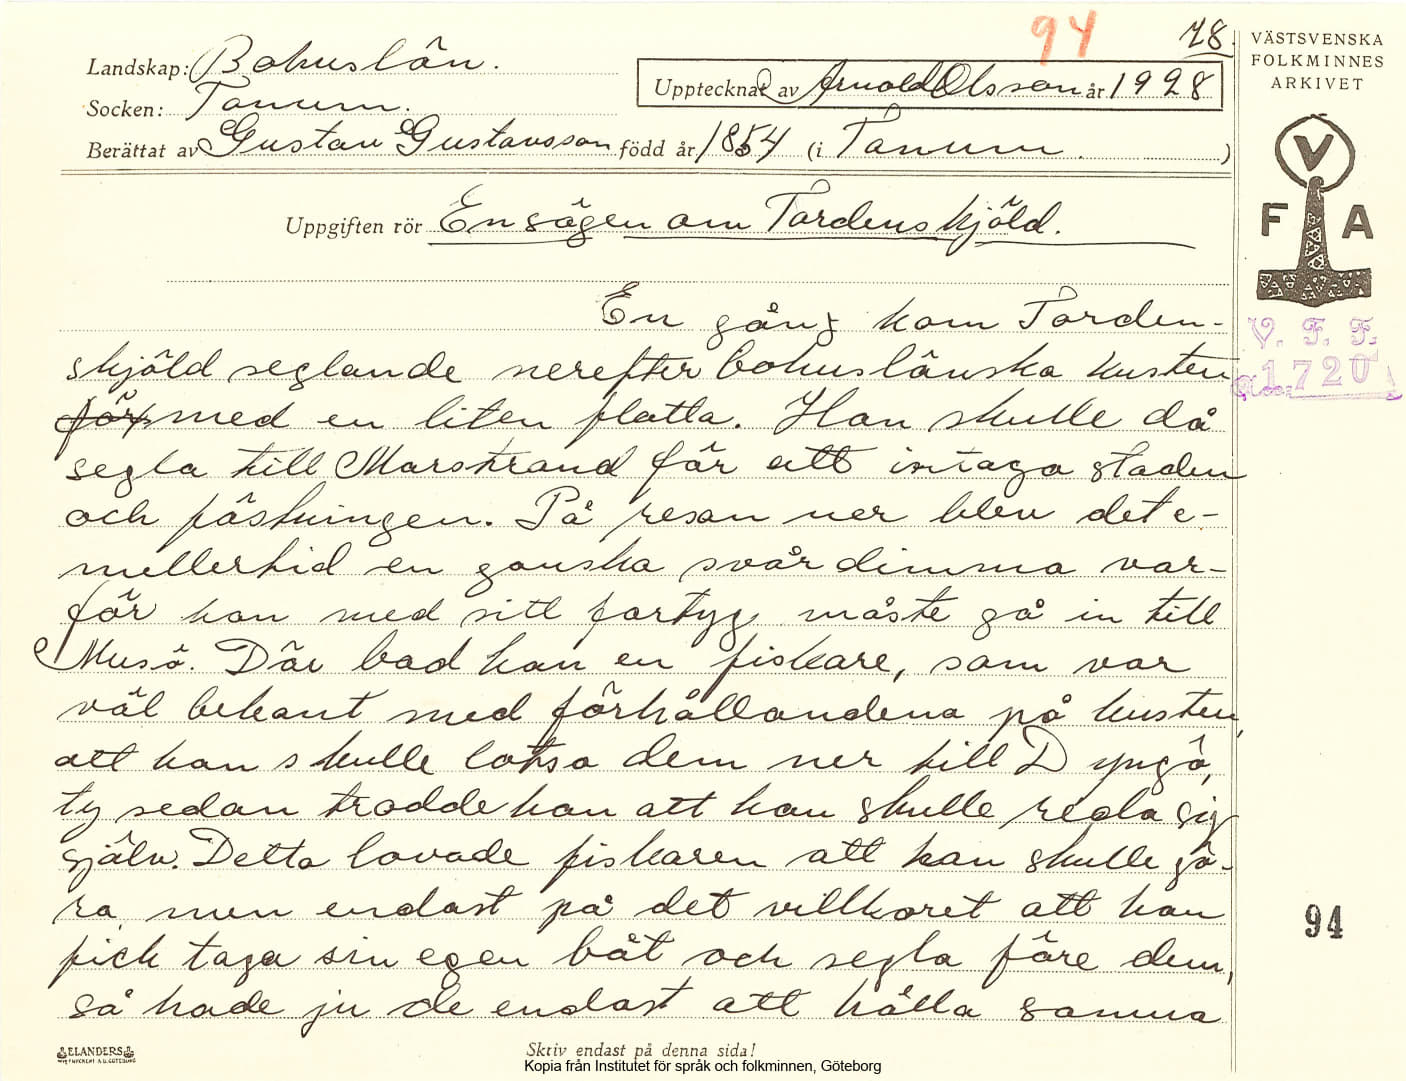 94
78.
Landskap: Bohuslän.
Upptecknat av Arnold Olsson år 1928
Socken: Tanum.
Berättat av Gustav Gustavsson född år 1854 (i Tanum. )
Uppgiften rör En sägen om Tordenskjöld.
En gång kom Torden-
skjöld seglande nerefter bohuslänska kusten
för med en liten flotta. Han skulle då
segla till Marstrand för att intaga staden
och fästningen. På resan ner blev det e-
mellertid en ganska svår dimma var-
för han med sitt fartyg måste gå in till
Musö. Där bad han en fiskare, som var
väl bekant med förhållandena på kusten,
att han skulle lotsa dem ner till Dyngö,
ty sedan trodde han att han skulle reda sig
själv. Detta lovade fiskaren att han skulle gö-
ra, men endast på det villkoret att han
fick taga sin egen båt och segla före dem,
så hade ju de endast att hålla samma
VÄSTSVENSKA
FOLKMINNES
ARKIVET
V
F A
V. F. F.
1720
94
ELANDERS
Skriv endast på denna sida!
Kopia från Institutet för språk och folkminnen, Göteborg